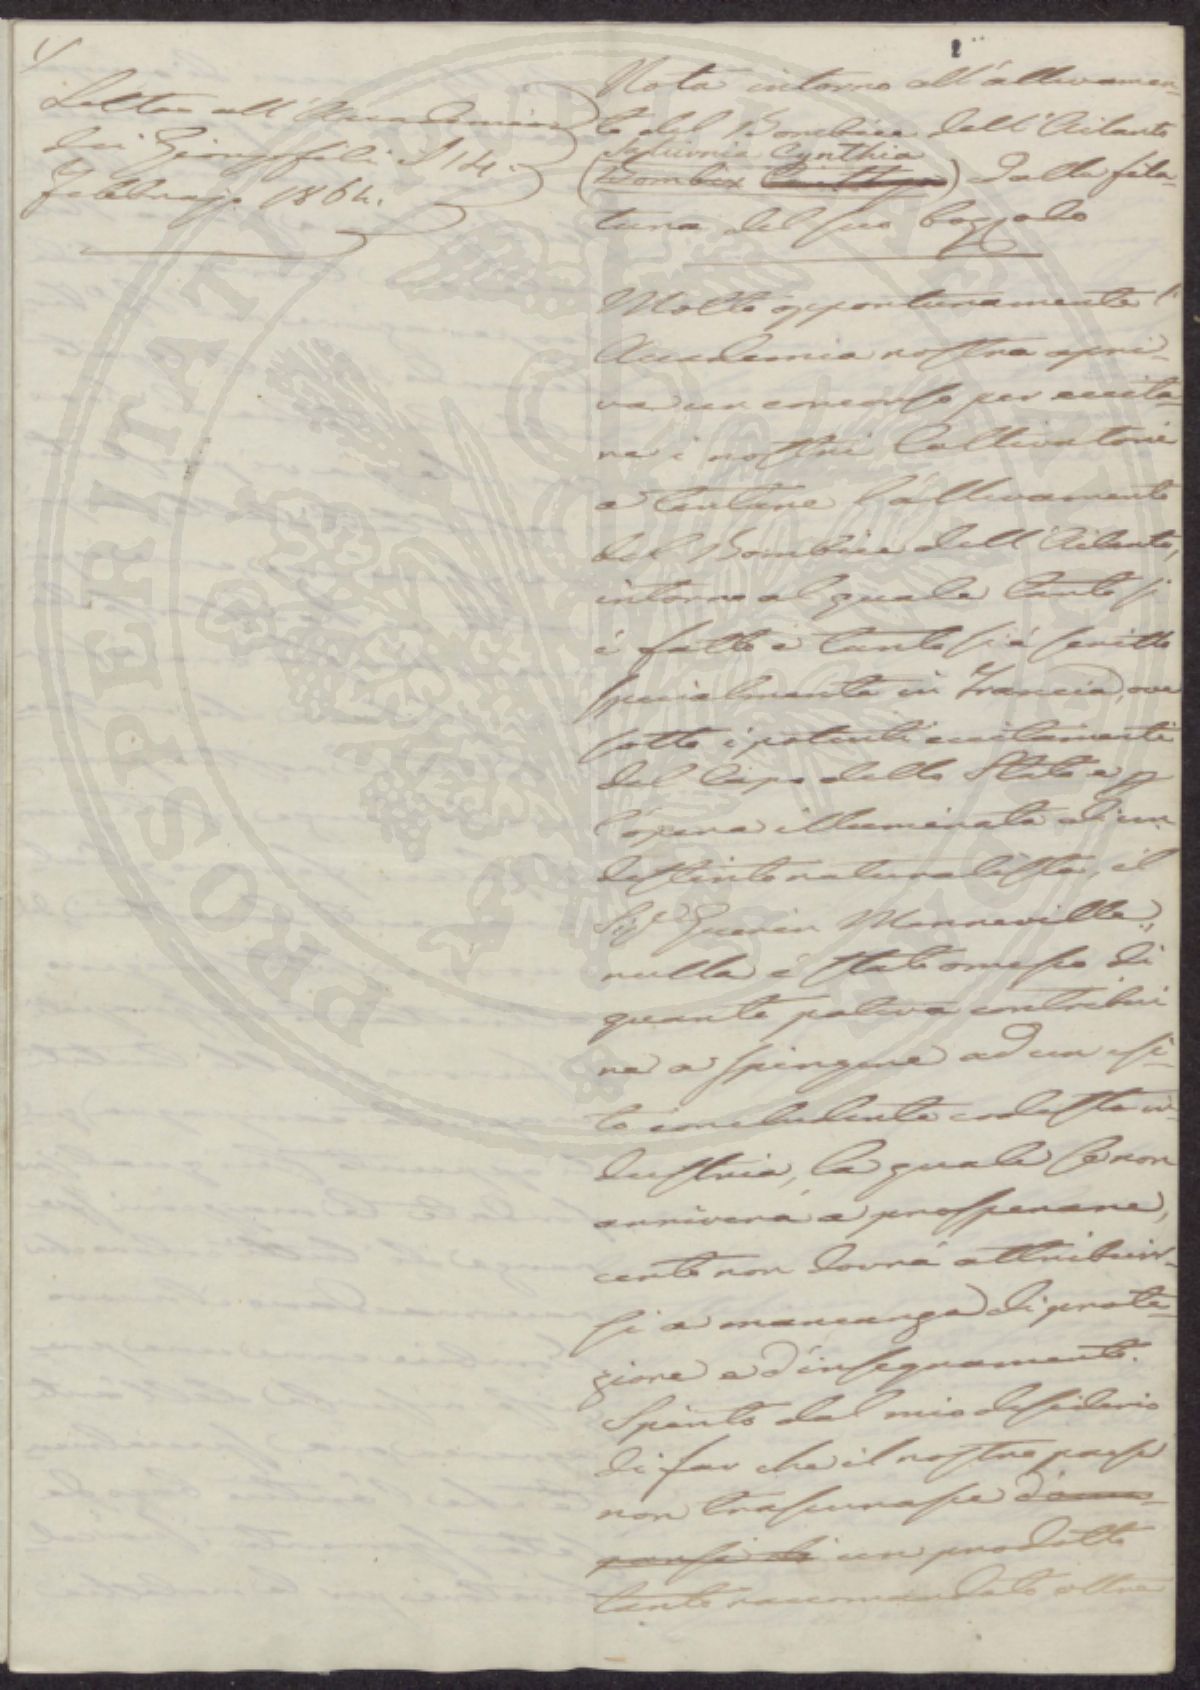 1
Letta all'Accademia
dei Georgofili il 14.
Febbrajo 1864.
Nota intorno all'allevamen-
to del Bombice dell'Ailanto
Saturnia Cynthia
(Bombix Cynthya) dalla fila-
tura del suo bozzolo
Molto opportunamente l'
Accademia nostra apri-
va un concorso per eccita-
re i nostri Coltivatori
a tentare l'allevamento
del Bombice dell'Ailanto,
intorno al quale tanto si
è fatto e tanto si è scritto
specialmente in Francia, ove
sotto i potenti eccitamenti
del Capo dello Stato e p
l'opera illuminata di un
distinto naturalista, il
Sigr Guerin Menneville,
nulla è stato omesso di
quanto poteva contribui
re a spingere ad un esi-
to concludente codesta in-
dustria, la quale se non
arriverà a prosperare,
certo non dovrà attribuir-
si a mancanza di prote-
zione e d'insegnamento.
Spinto dal mio desiderio
di far che il nostro paese
non trascurasse
un prodotto
tanto raccomandato oltre
PROSPERITATI PUBLICAE